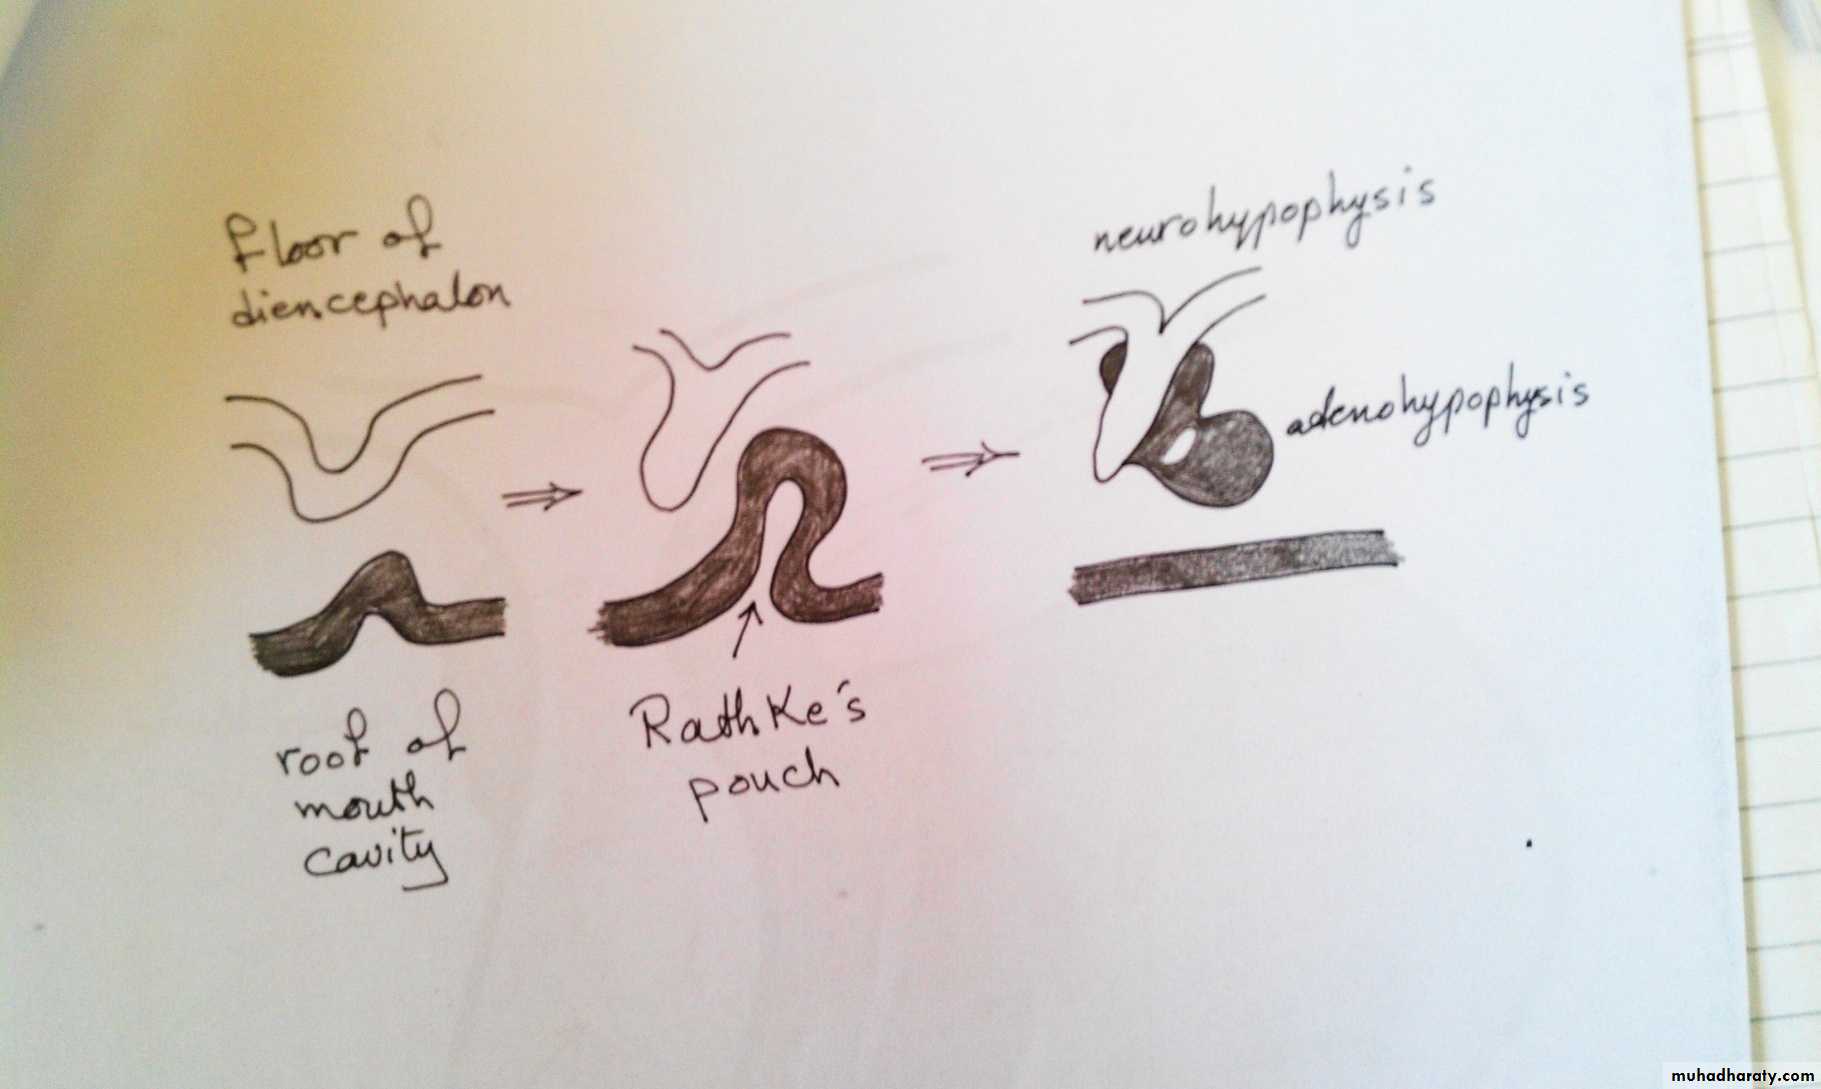 floor of
diencephalon
roof of
mouth
cavity
Rathke's
pouch
neurohypophysis
adenohypophysis
muhadharaty.com